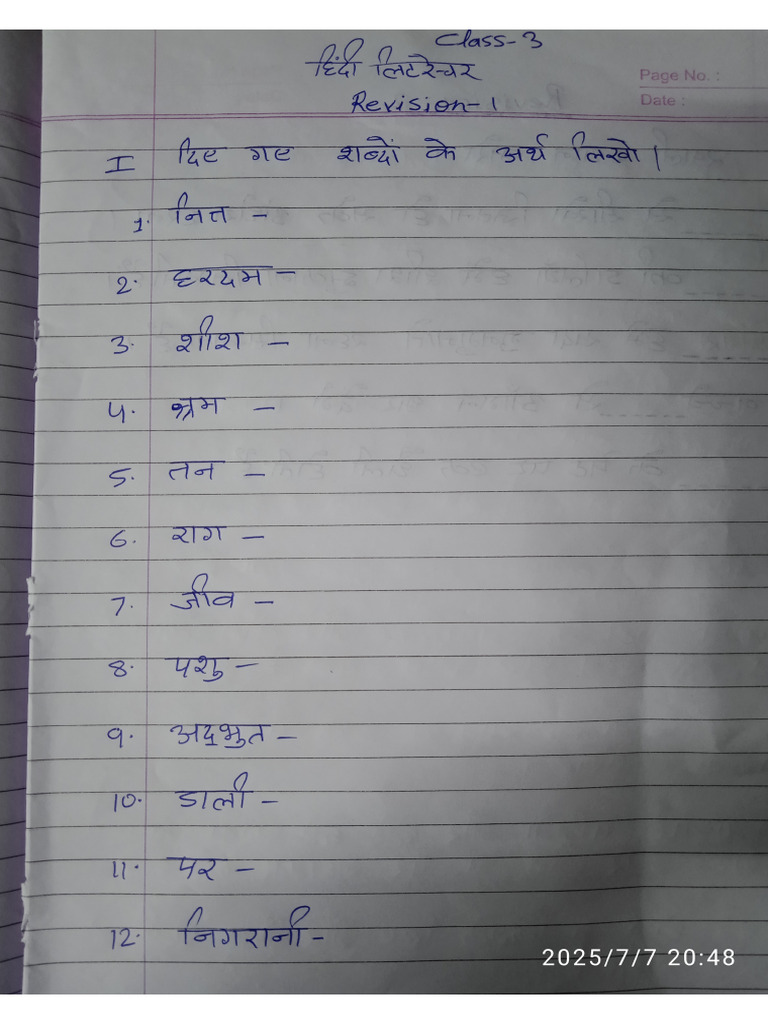 Class-3
हिंदी लिटरेचर
Page No. :
Revision-1
Date :
I दिए गए शब्दों के अर्थ लिखो।
1. नित्त -
2. हरदम -
3. शीश -
4. श्रम -
5. तन -
6. राग -
7. जीव -
8. पशु -
9. अद्भुत -
10. डाली -
11. पर -
12. निगरानी -
2025/7/7 20:48